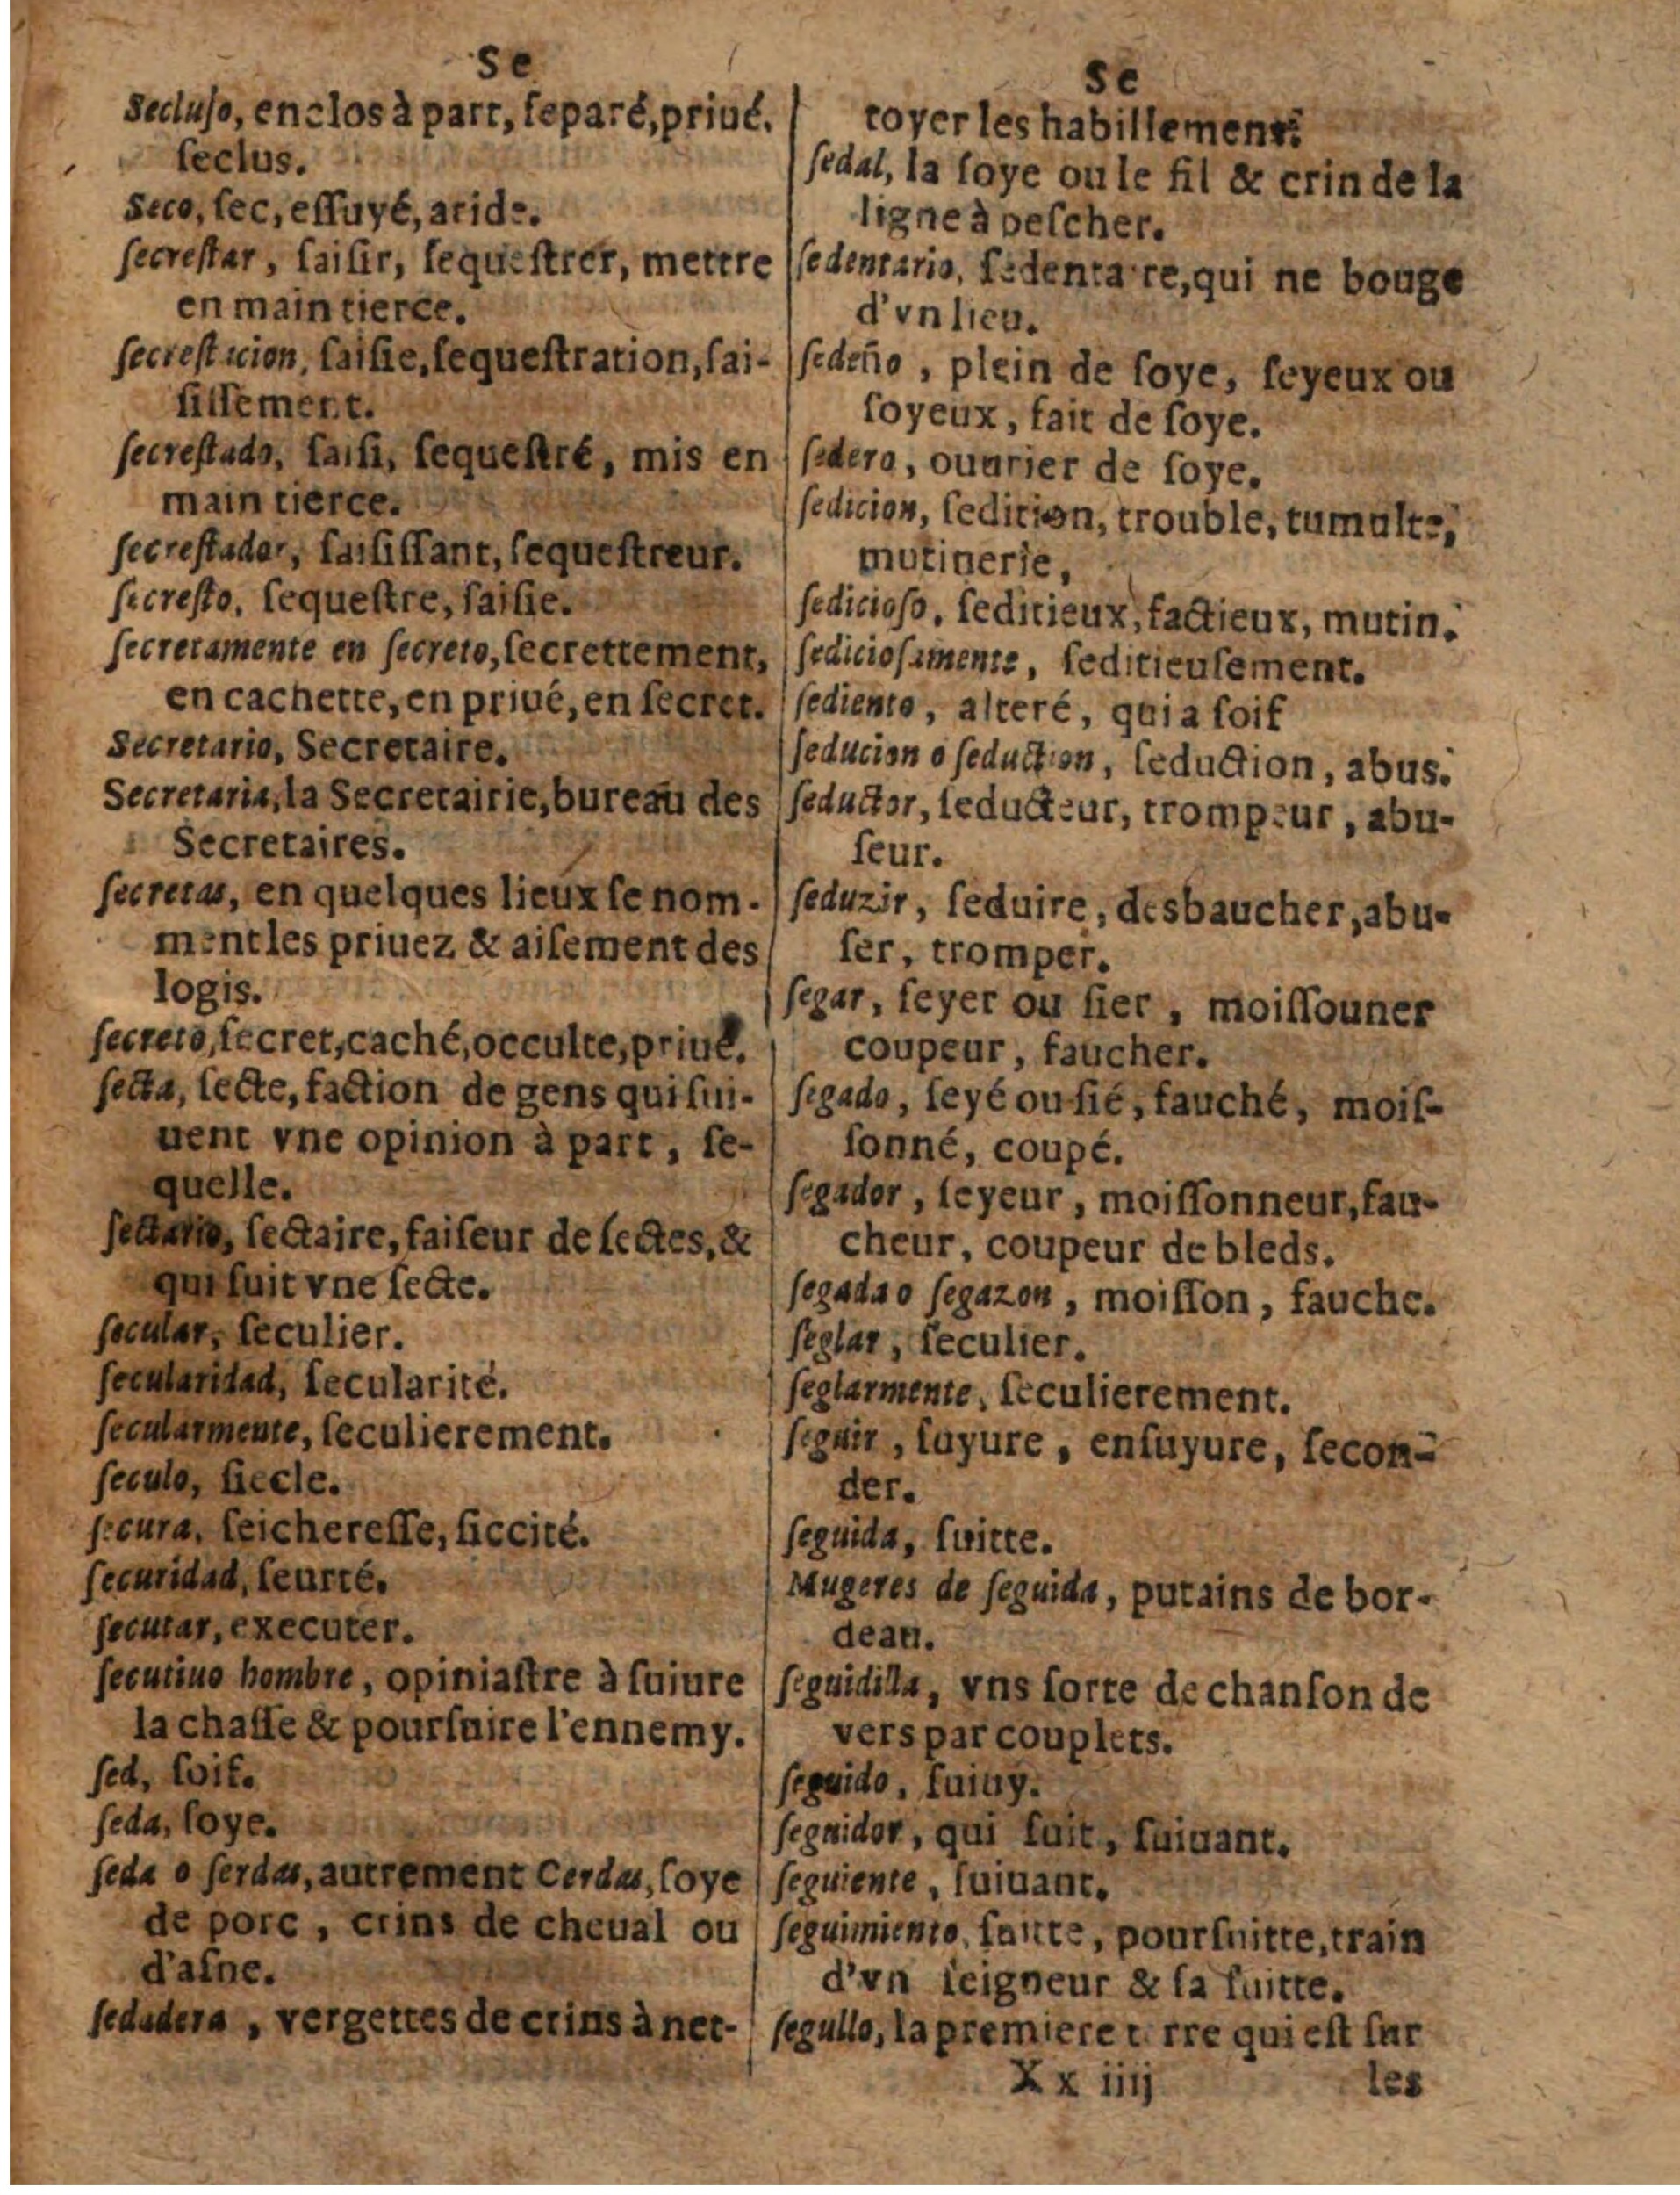 Se
Secluſo, enclos à part, ſeparé, priué,
ſeclus.
Seco, ſec, eſſuyé, aride.
ſecreſtar, ſaiſir, ſequeſtrer, mettre
en main tierce.
ſecreſtacion, ſaiſie, ſequeſtration, ſai-
ſiſſement.
ſecreſtado, ſaiſi, ſequeſtré, mis en
main tierce.
ſecreſtador, ſaiſiſſant, ſequeſtreur.
ſecreſto, ſequeſtre, ſaiſie.
ſecretamente en ſecreto, ſecrettement,
en cachette, en priué, en ſecret.
Secretario, Secretaire.
Secretaria, la Secretairie, bureau des
Secretaires.
ſecretas, en quelques lieux ſe nom-
ment les priuez & aiſement des
logis.
ſecreto, ſecret, caché, occulte, priué.
ſecta, ſecte, faction de gens qui ſui-
uent vne opinion à part, ſe-
quelle.
ſectario, ſectaire, faiſeur de ſectes, &
qui ſuit vne ſecte.
ſecular, ſeculier.
ſecularidad, ſecularité.
ſecularmente, ſeculierement.
ſeculo, ſiecle.
ſecura, ſeichereſſe, ſiccité.
ſecuridad, ſeurté.
ſecutar, executer.
ſecutiuo hombre, opiniaſtre à ſuiure
la chaſſe & pourſuire l'ennemy.
ſed, ſoif.
ſeda, ſoye.
ſeda o ſerdas, autrement Cerdas, ſoye
de porc, crins de cheual ou
d'aſne.
ſedadera, vergettes de crins à net-
Se
toyer les habillements
ſedal, la ſoye ou le fil & crin de la
ligne à peſcher.
ſedentario, ſedentaire, qui ne bouge
d'vn lieu.
ſedeño, plein de ſoye, ſeyeux ou
ſoyeux, fait de ſoye.
ſedero, ouurier de ſoye.
ſedicion, ſedition, trouble, tumulte,
mutinerie,
ſedicioſo, ſeditieux, factieux, mutin.
ſedicioſamente, ſeditieuſement.
ſediento, alteré, qui a ſoif
ſeducion o ſeduction, ſeduction, abus.
ſeductor, ſeducteur, trompeur, abu-
ſeur.
ſeduzir, ſeduire, desbaucher, abu-
ſer, tromper.
ſegar, ſeyer ou ſier, moiſſouner
coupeur, faucher.
ſegado, ſeyé ou ſié, fauché, moiſ-
ſonné, coupé.
ſegador, ſeyeur, moiſſonneur, fau-
cheur, coupeur de bleds.
ſegada o ſegazon, moiſſon, fauche.
ſeglar, ſeculier.
ſeglarmente, ſeculierement.
ſeguir, ſuyure, enſuyure, ſecon-
der.
ſeguida, ſuitte.
Mugeres de ſeguida, putains de bor-
deau.
ſeguidilla, vns ſorte de chanſon de
vers par couplets.
ſeguido, ſuiuy.
ſeguidor, qui ſuit, ſuiuant.
ſeguiente, ſuiuant.
ſeguimiento, ſuitte, pourſuitte, train
d'vn ſeigneur & ſa ſuitte.
ſegullo, la premiere terre qui eſt ſur
Xx iiij les